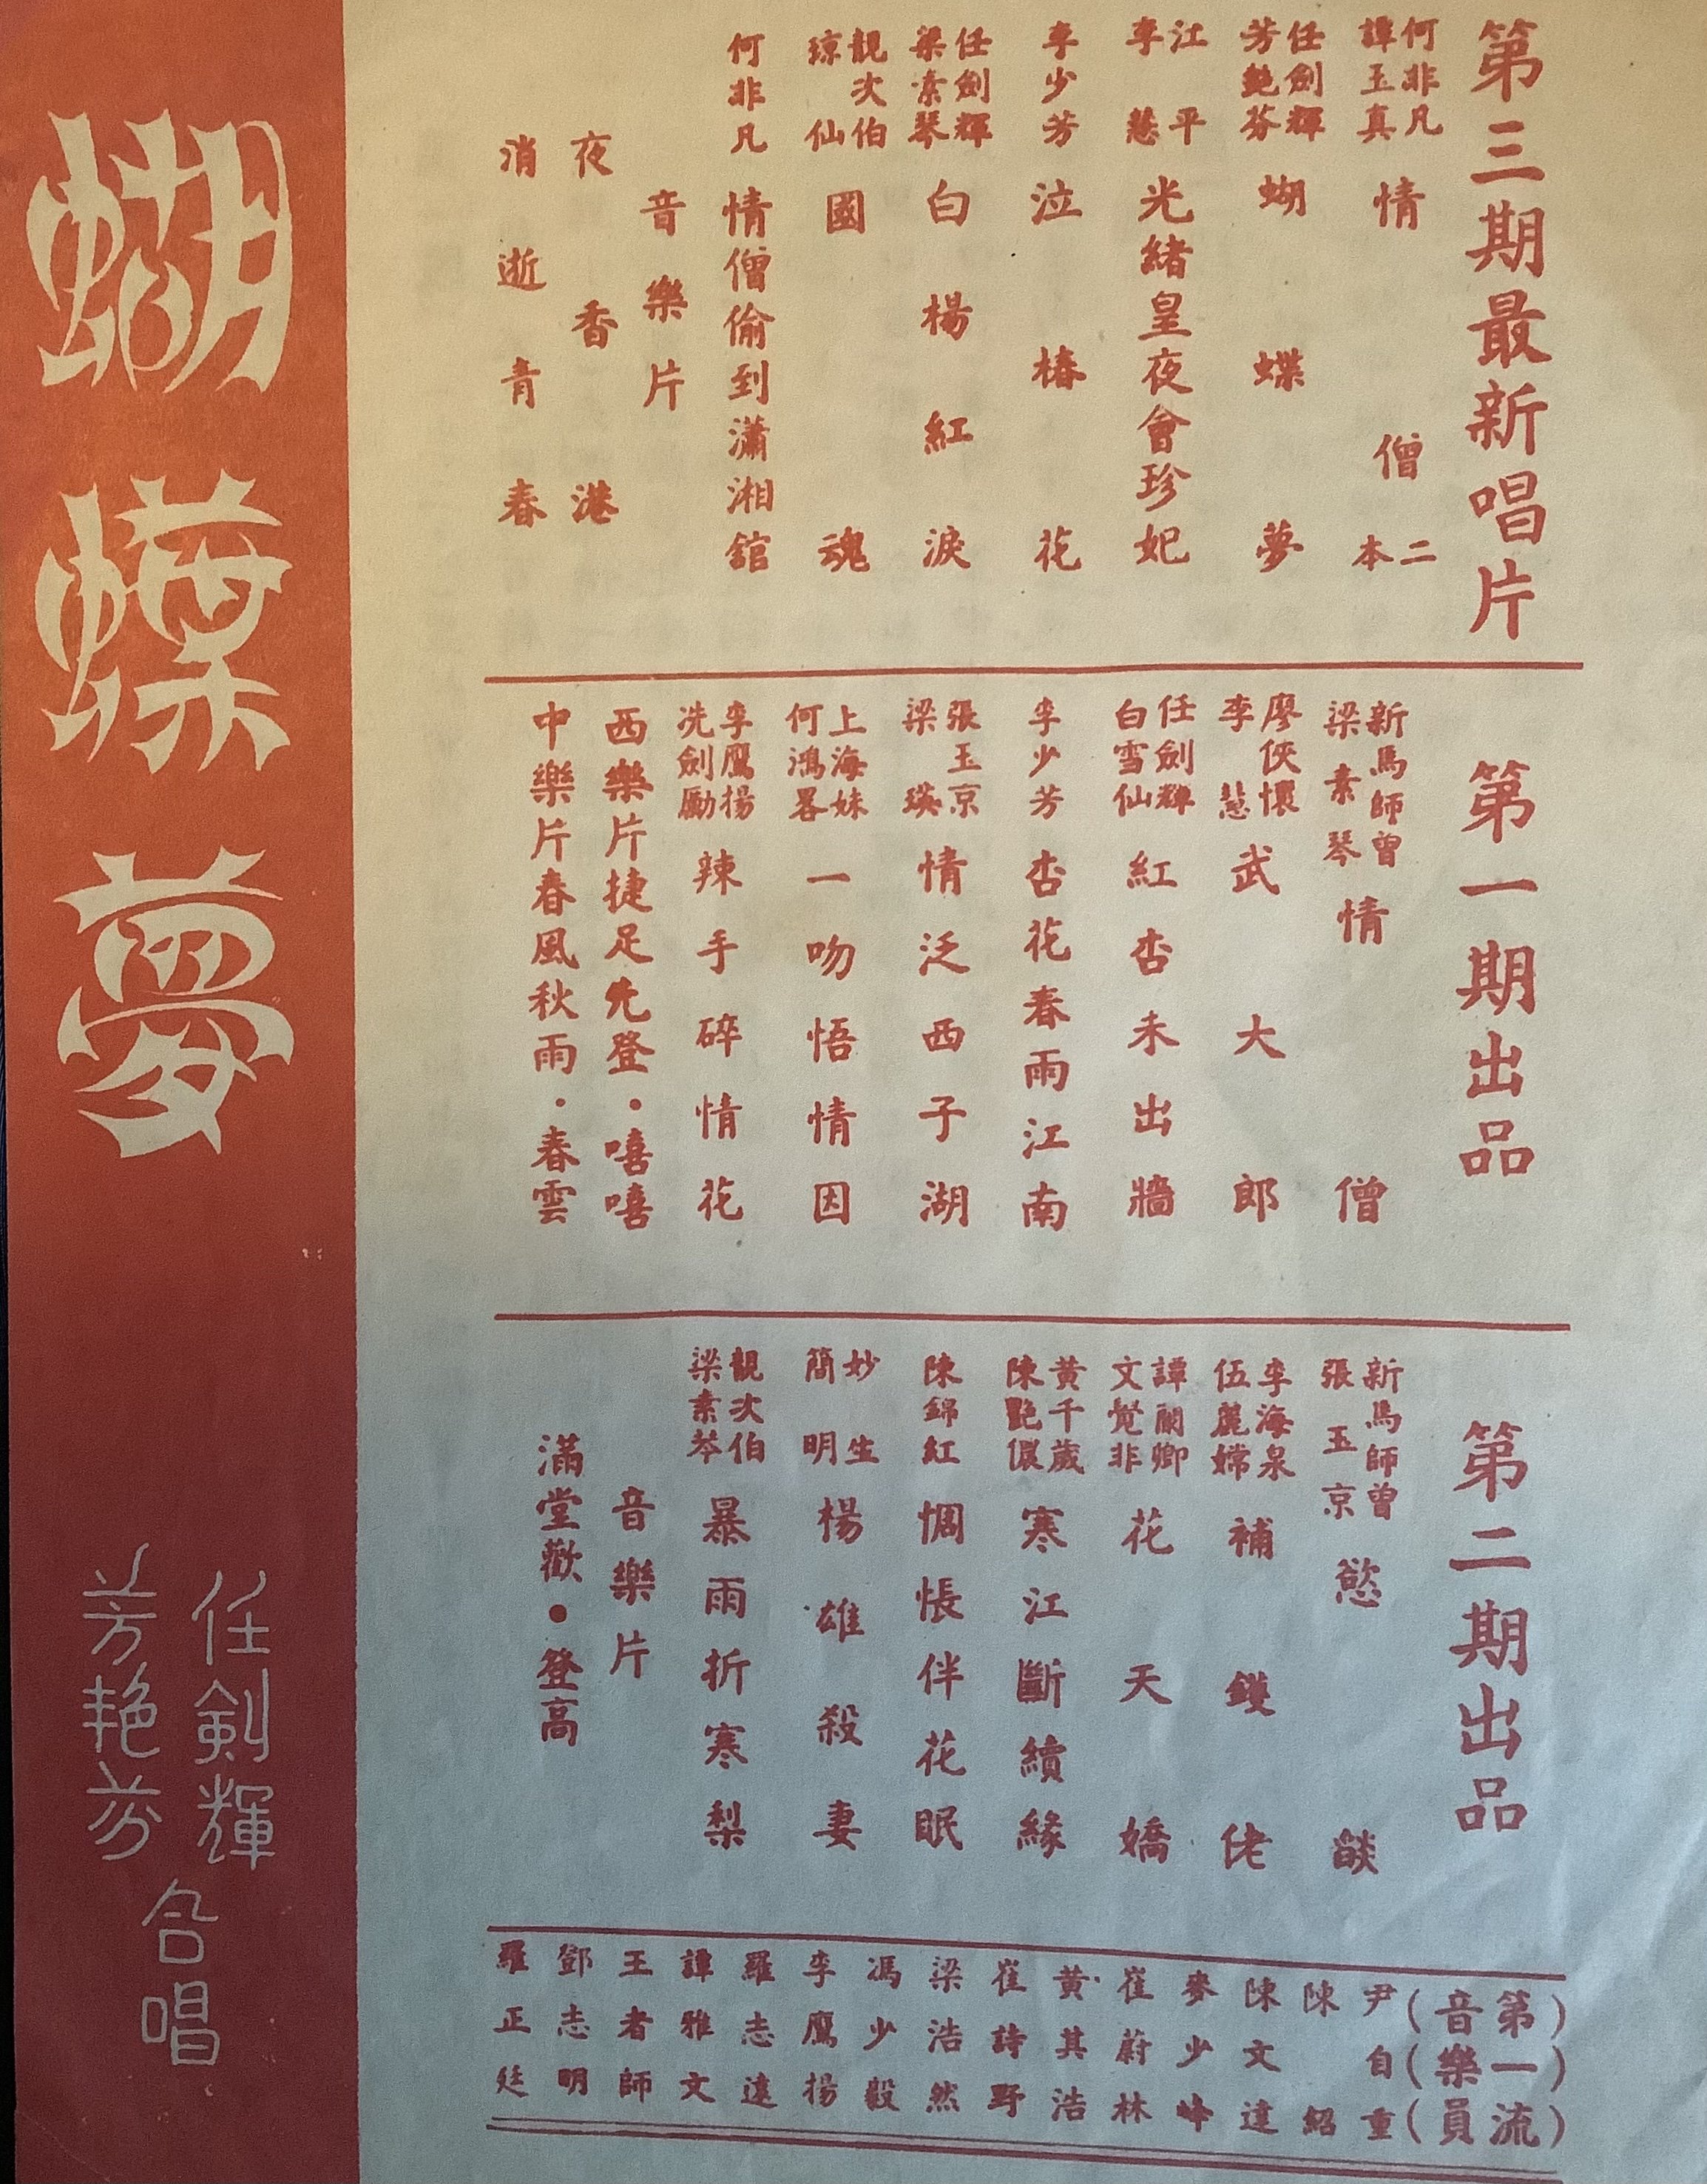 第三期最新唱片
何非凡
譚玉真
情僧
二本
任劍輝
芳艷芬
蝴蝶夢
江平
李慧
光緒皇夜會珍妃
李少芳
泣椿花
任劍輝
梁素琴
白楊紅淚
靚次伯
琼仙
國魂
何非凡
情僧偷到瀟湘舘
音樂片
夜香港
消逝青春
第一期出品
新馬師曾
梁素琴
情僧
廖俠懷
李慧
武大郎
任劍輝
白雪仙
紅杏未出牆
李少芳
杏花春雨江南
張玉京
梁瑛
情泛西子湖
上海妹
何鴻畧
一吻悟情因
李鷹揚
冼劍勵
辣手碎情花
西樂片捷足先登・嘻嘻
中樂片春風秋雨・春雲
第二期出品
新馬師曾
張玉京
慾燄
李海泉
伍麗嫦
補鑊佬
譚蘭卿
文覺非
花天嬌
黃千歲
陳艷儂
寒江斷續緣
陳錦紅
惆悵伴花眠
妙生
簡明
楊雄殺妻
靚次伯
梁素琴
暴雨折寒梨
音樂片
滿堂歡・登高
(第一流)
(音樂員)
尹自重
陳紹
陳文達
麥少峰
崔蔚林
黃其浩
崔詩野
梁浩然
馮少毅
李鷹揚
羅志遠
譚雅文
王者師
鄧志明
羅正廷
蝴蝶夢
任劍輝
芳艷芬
合唱